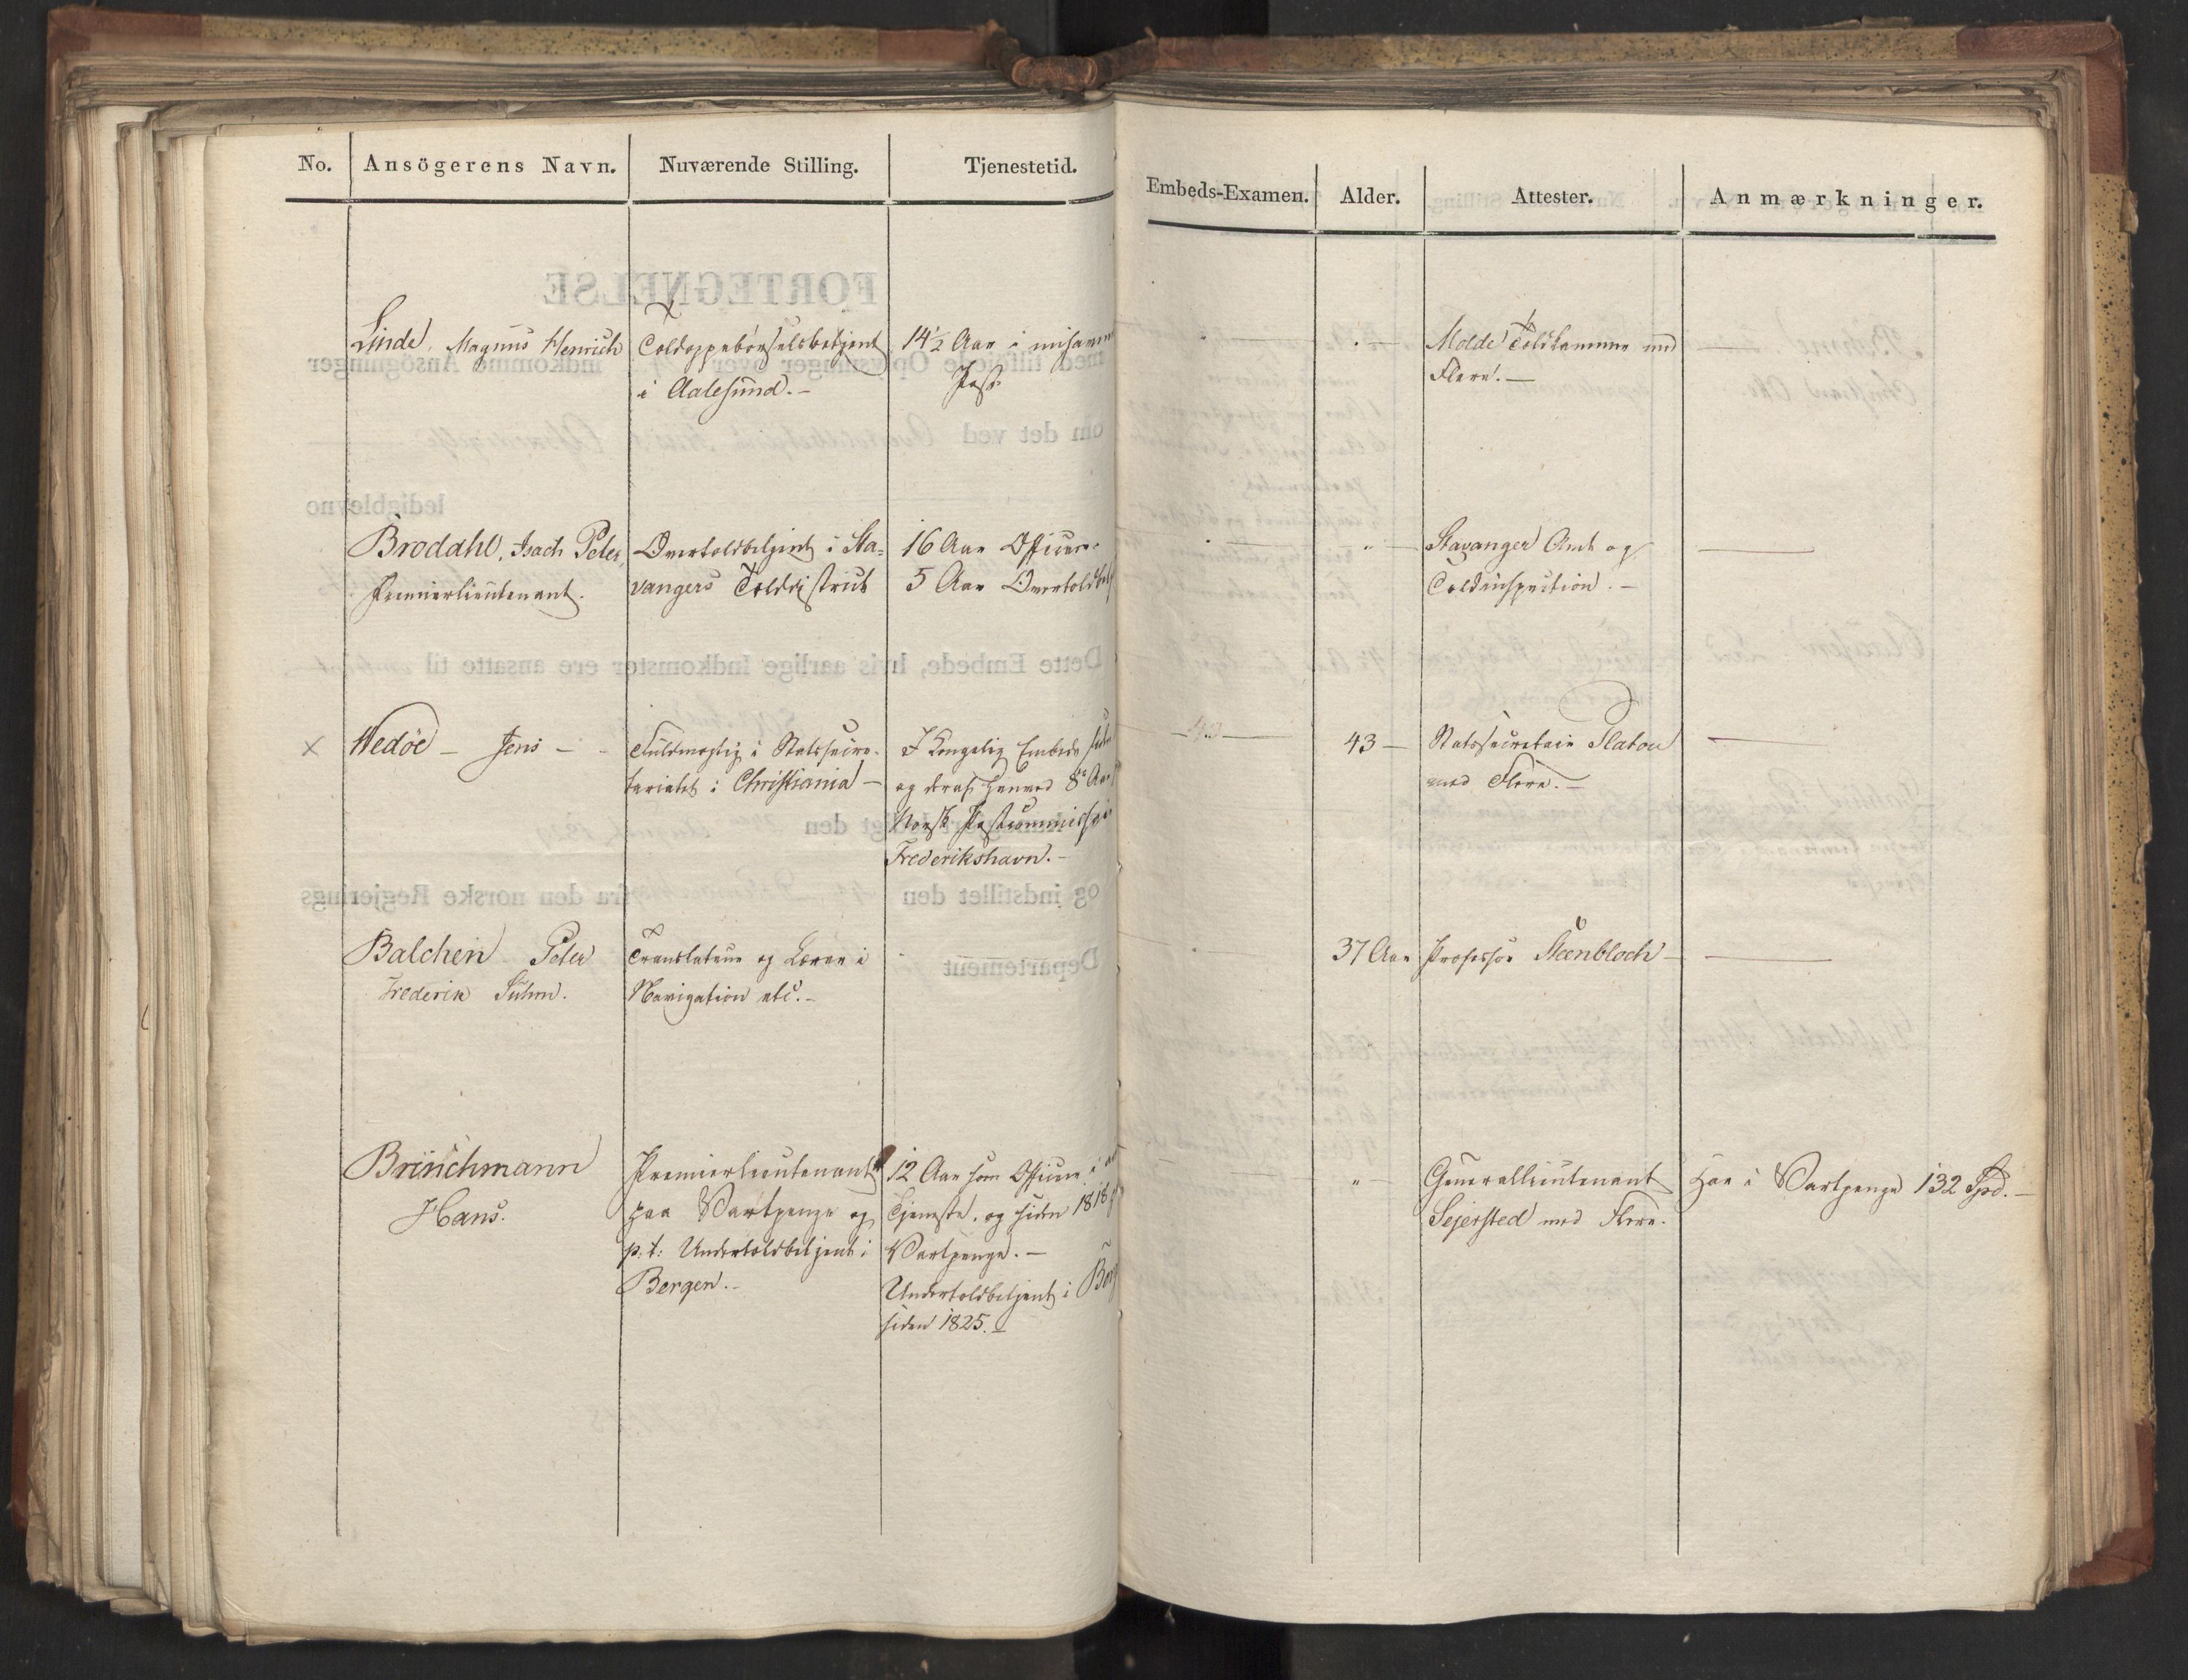 No. Ansögerens Navn. Nuværende Stilling. Tjenestetid.
Linde, Magnus Henrich
Toldoppebørselsbetjent
i Aalesund.-
14½ Aar i
Post
Brodahl, Isach Peter,
Premierlieutenant.
Overtoldbetjent i Sta-
vangers Tolddistrict
16 Aar Officeer.
5 Aar Overtoldbetj
× Wedöe - Jens -
Fuldmægtig i Statssecre-
tariatet i Christiania -
I Kongelig Embede
og deraf henved 8 Aar
Norsk Postcommissair
Frederikshavn.-
Balchen Peter
Frederik Suhm.
Translateur og Lærer i
Navigation etc.-
Brinchmann
Hans.
Premierlieutenant
paa Vartpenge og
p: t: Undertoldbetjent i
Bergen.-
12 Aar som Officeer i
Tjeneste, og siden 1818
Vartpenge.-
Undertoldbetjent i Berg
siden 1825.-
Embeds-Examen. Alder. Attester. Anmærkninger.
Molde Toldkammer med
Flere.-
Stavanger Amt og
Toldinspection.-
43 -
Statssecretair Platou
med Flere.-
37 Aar
Professor Steenbloch -
"
Generallieutenant
Sejersted med Flere.
Har i Vartpenge 132 Spd.-
FORTEGNELSE
med tilföiede Oplysninger over indkomme Ansögninger
om det ved
ledigblevne
Dette Embede, hvis aarlige Indkomster ere ansatte til
og indstillet den fra den norske Regjerings
Departement